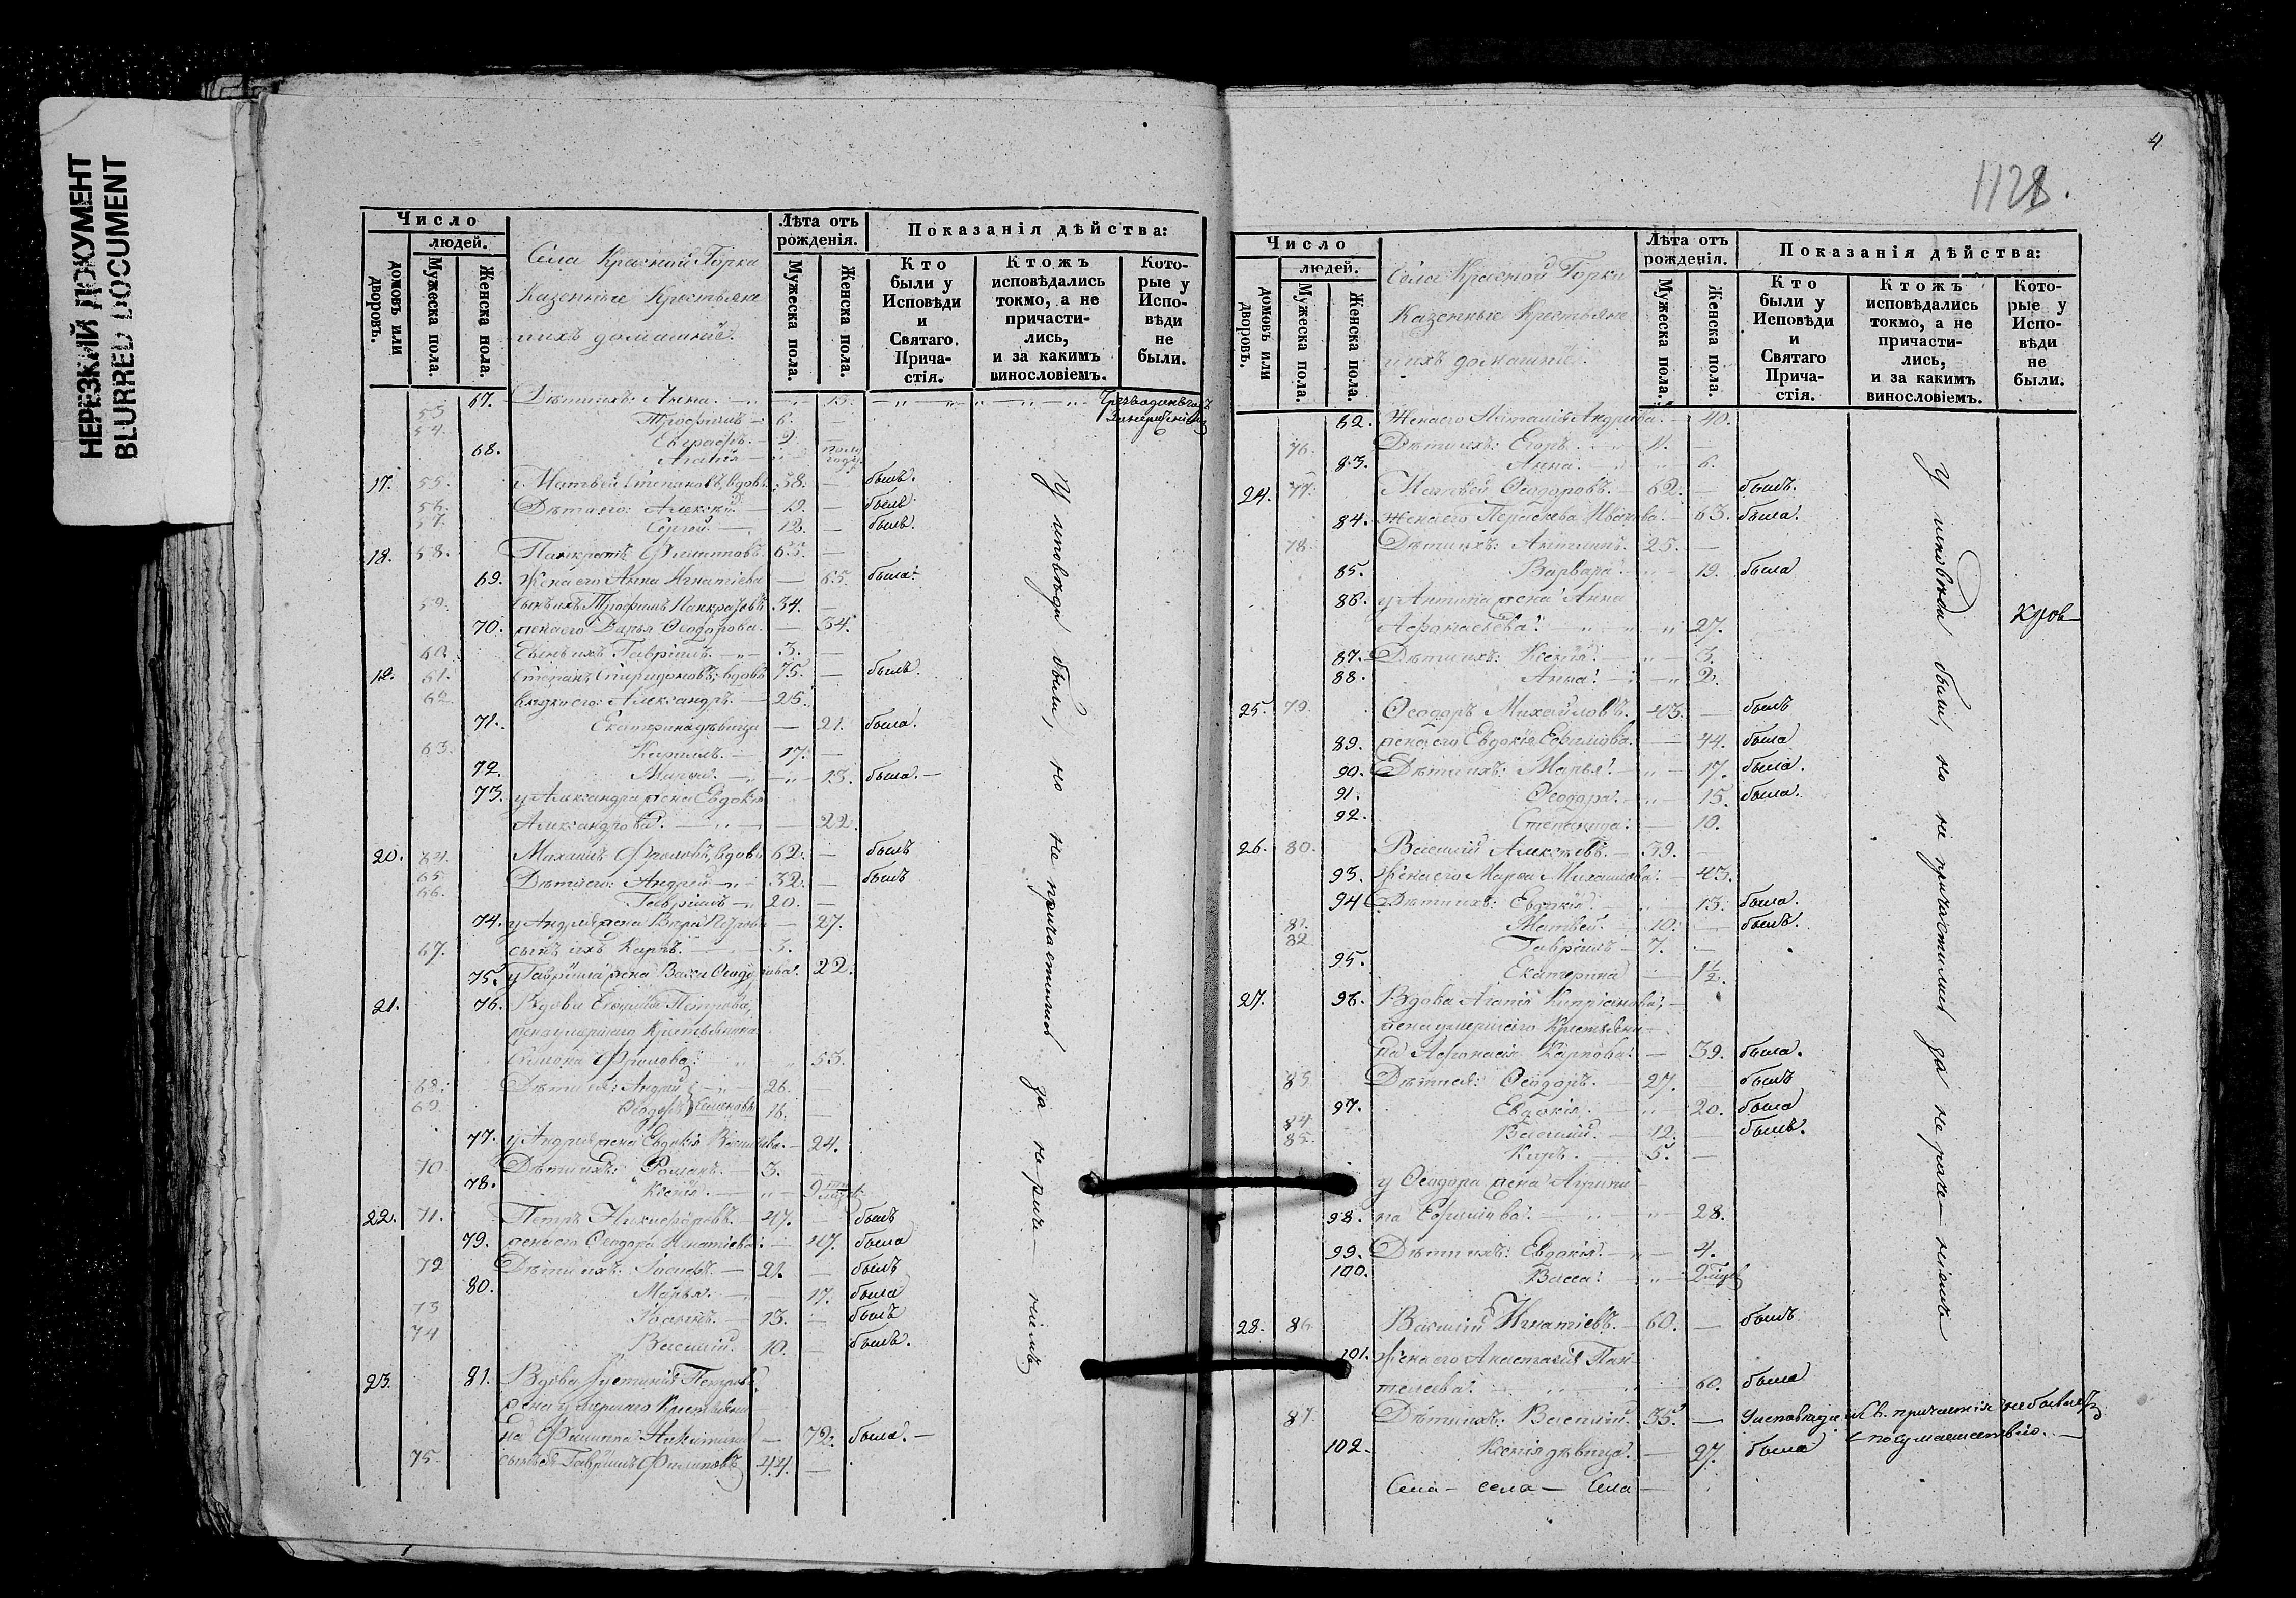 НЕРЕЗКИЙ ДОКУМЕНТ
BLURRED DOCUMENT
Число
людей.
домовъ или дворовъ.
Мужеска пола.
Женска пола.
Села Красной Горки
Казенные Крестьяне
и ихъ домашніе.
Лѣта отъ рожденія.
Мужеска пола.
Женска пола.
Показанія дѣйства:
Кто были у Исповѣди и Святаго Прича-стія.
Ктожъ исповѣдались токмо, а не причасти-лись, и за какимъ винословіемъ.
Кото-рые у Испо-вѣди не были.
67. Дѣти ихъ: Анна. 13.
53 Трофимъ 6.
54. Евграфъ. 2.
68. Агапія
17. 55. Матвей Степановъ, вдовъ 58. былъ.
56. Дѣти его: Алексѣй 19. былъ
57. Сергѣй. 12. былъ.
18. 58. Панкратъ Филипповъ 63.
69. Жена его Анна Игнатіева 65. была.
59. Сынъ ихъ Трофимъ Панкратовъ 34.
70. жена его Дарья Ѳеодорова. 34.
60. Сынъ ихъ Гавріилъ. 3.
19. 61. Степанъ Спиридоновъ, вдовъ 75. былъ.
62. Александръ. 25.
71. Екатерина дѣвица 21. была.
63. Кириллъ. 17.
72. Марья. 13. была.
73. у Александра жена Евдокія
Александрова. 22.
20. 64. Михаилъ Фроловъ, вдовъ 62. былъ
65 Дѣти его: Андрей 32. былъ
66. Гавріилъ 20.
74. у Андрея жена Вѣра Петрова 27.
67. сынъ ихъ Карпъ. 3.
75. у Гавріила жена Васса Ѳеодорова. 22.
21. 76. Вдова Евфимія Петрова,
жена умершаго Крестьянина
Симона Фролова. 53.
68. Дѣти ея: Андрей 26.
69 Ѳеодоръ Семеновы 16.
77. у Андрея жена Евдокія Васильева. 24.
70 Дѣти ихъ: Романъ. 3.
78. Ксенія. 9
22. 71. Петръ Никифоровъ. 47. былъ
79. жена его Ѳеодора Игнатіева. 47. была
72 Дѣти ихъ: Іосифъ. 21. былъ
80. Марья. 17. была
73 Іоаннъ. 13. былъ
74 Василій. 10. былъ.
23. 81. Вдова Іустинія Петрова,
жена умершаго Крестьяни-
на Филиппа Никитина 72. была.
75. сынъ ея Гавріилъ Филиповъ 44.
У исповѣди были, но не причастились за нераче-ніемъ
4
1128.
Число
людей.
домовъ или дворовъ.
Мужеска пола.
Женска пола.
Села Красной Горки
Казенные Крестьяне
и ихъ домашніе.
Лѣта отъ рожденія.
Мужеска пола.
Женска пола.
Показанія дѣйства:
Кто были у Исповѣди и Святаго Прича-стія.
Ктожъ исповѣдались токмо, а не причасти-лись, и за какимъ винословіемъ.
Кото-рые у Испо-вѣди не были.
82. Жена его Наталія Андреева. 40.
76. Дѣти ихъ: Егоръ. 11.
83. Анна. 6.
24. 77. Матвей Ѳеодоровъ. 62. былъ.
84. Жена его Параскева Иванова. 63. была.
78. Дѣти ихъ: Антипъ. 25.
85. Варвара. 19. была
86. у Антипа жена Анна
Аѳонасьева. 27.
87. Дѣти ихъ: Ксенія. 3.
88. Анна. 2.
25. 79. Ѳеодоръ Михайловъ. 43. былъ
89. жена его Евдокія Евфимова. 44. была
90. Дѣти ихъ: Марья. 17. была.
91. Ѳеодора. 15. была.
92. Степанида. 10.
26. 80. Василій Алексѣевъ. 39.
93. Жена его Марѳа Михаилова. 43.
94 Дѣти ихъ: Евдокія. 13. была.
81. Матвей. 10. былъ.
82 Гавріилъ 7.
95. Екатерина 1 1/2.
27. 96. Вдова Агапія Кипріанова,
жена умершаго Крестьяни-
на Аѳонасія Карпова. 39. была.
83. Дѣти ея: Ѳеодоръ. 27. былъ
97. Евдокія. 20. была
84 Василій. 12. былъ.
85. Киръ. 5.
у Ѳеодора жена Агрипи-
98. на Ефимова. 28.
99. Дѣти ихъ: Евдокія. 4.
100. Васса. 2
28. 86 Василій Игнатіевъ. 60. былъ
101. Жена его Анастасія Пан-
телеева. 60. была
87. Дѣти ихъ: Василій. 35. У исповѣди и Св. причастія не бываетъ
по сумашествію.
102. Ксенія дѣвица. 27. была
Села - села - Села
У исповѣди были, но не причастились за нераче-ніемъ